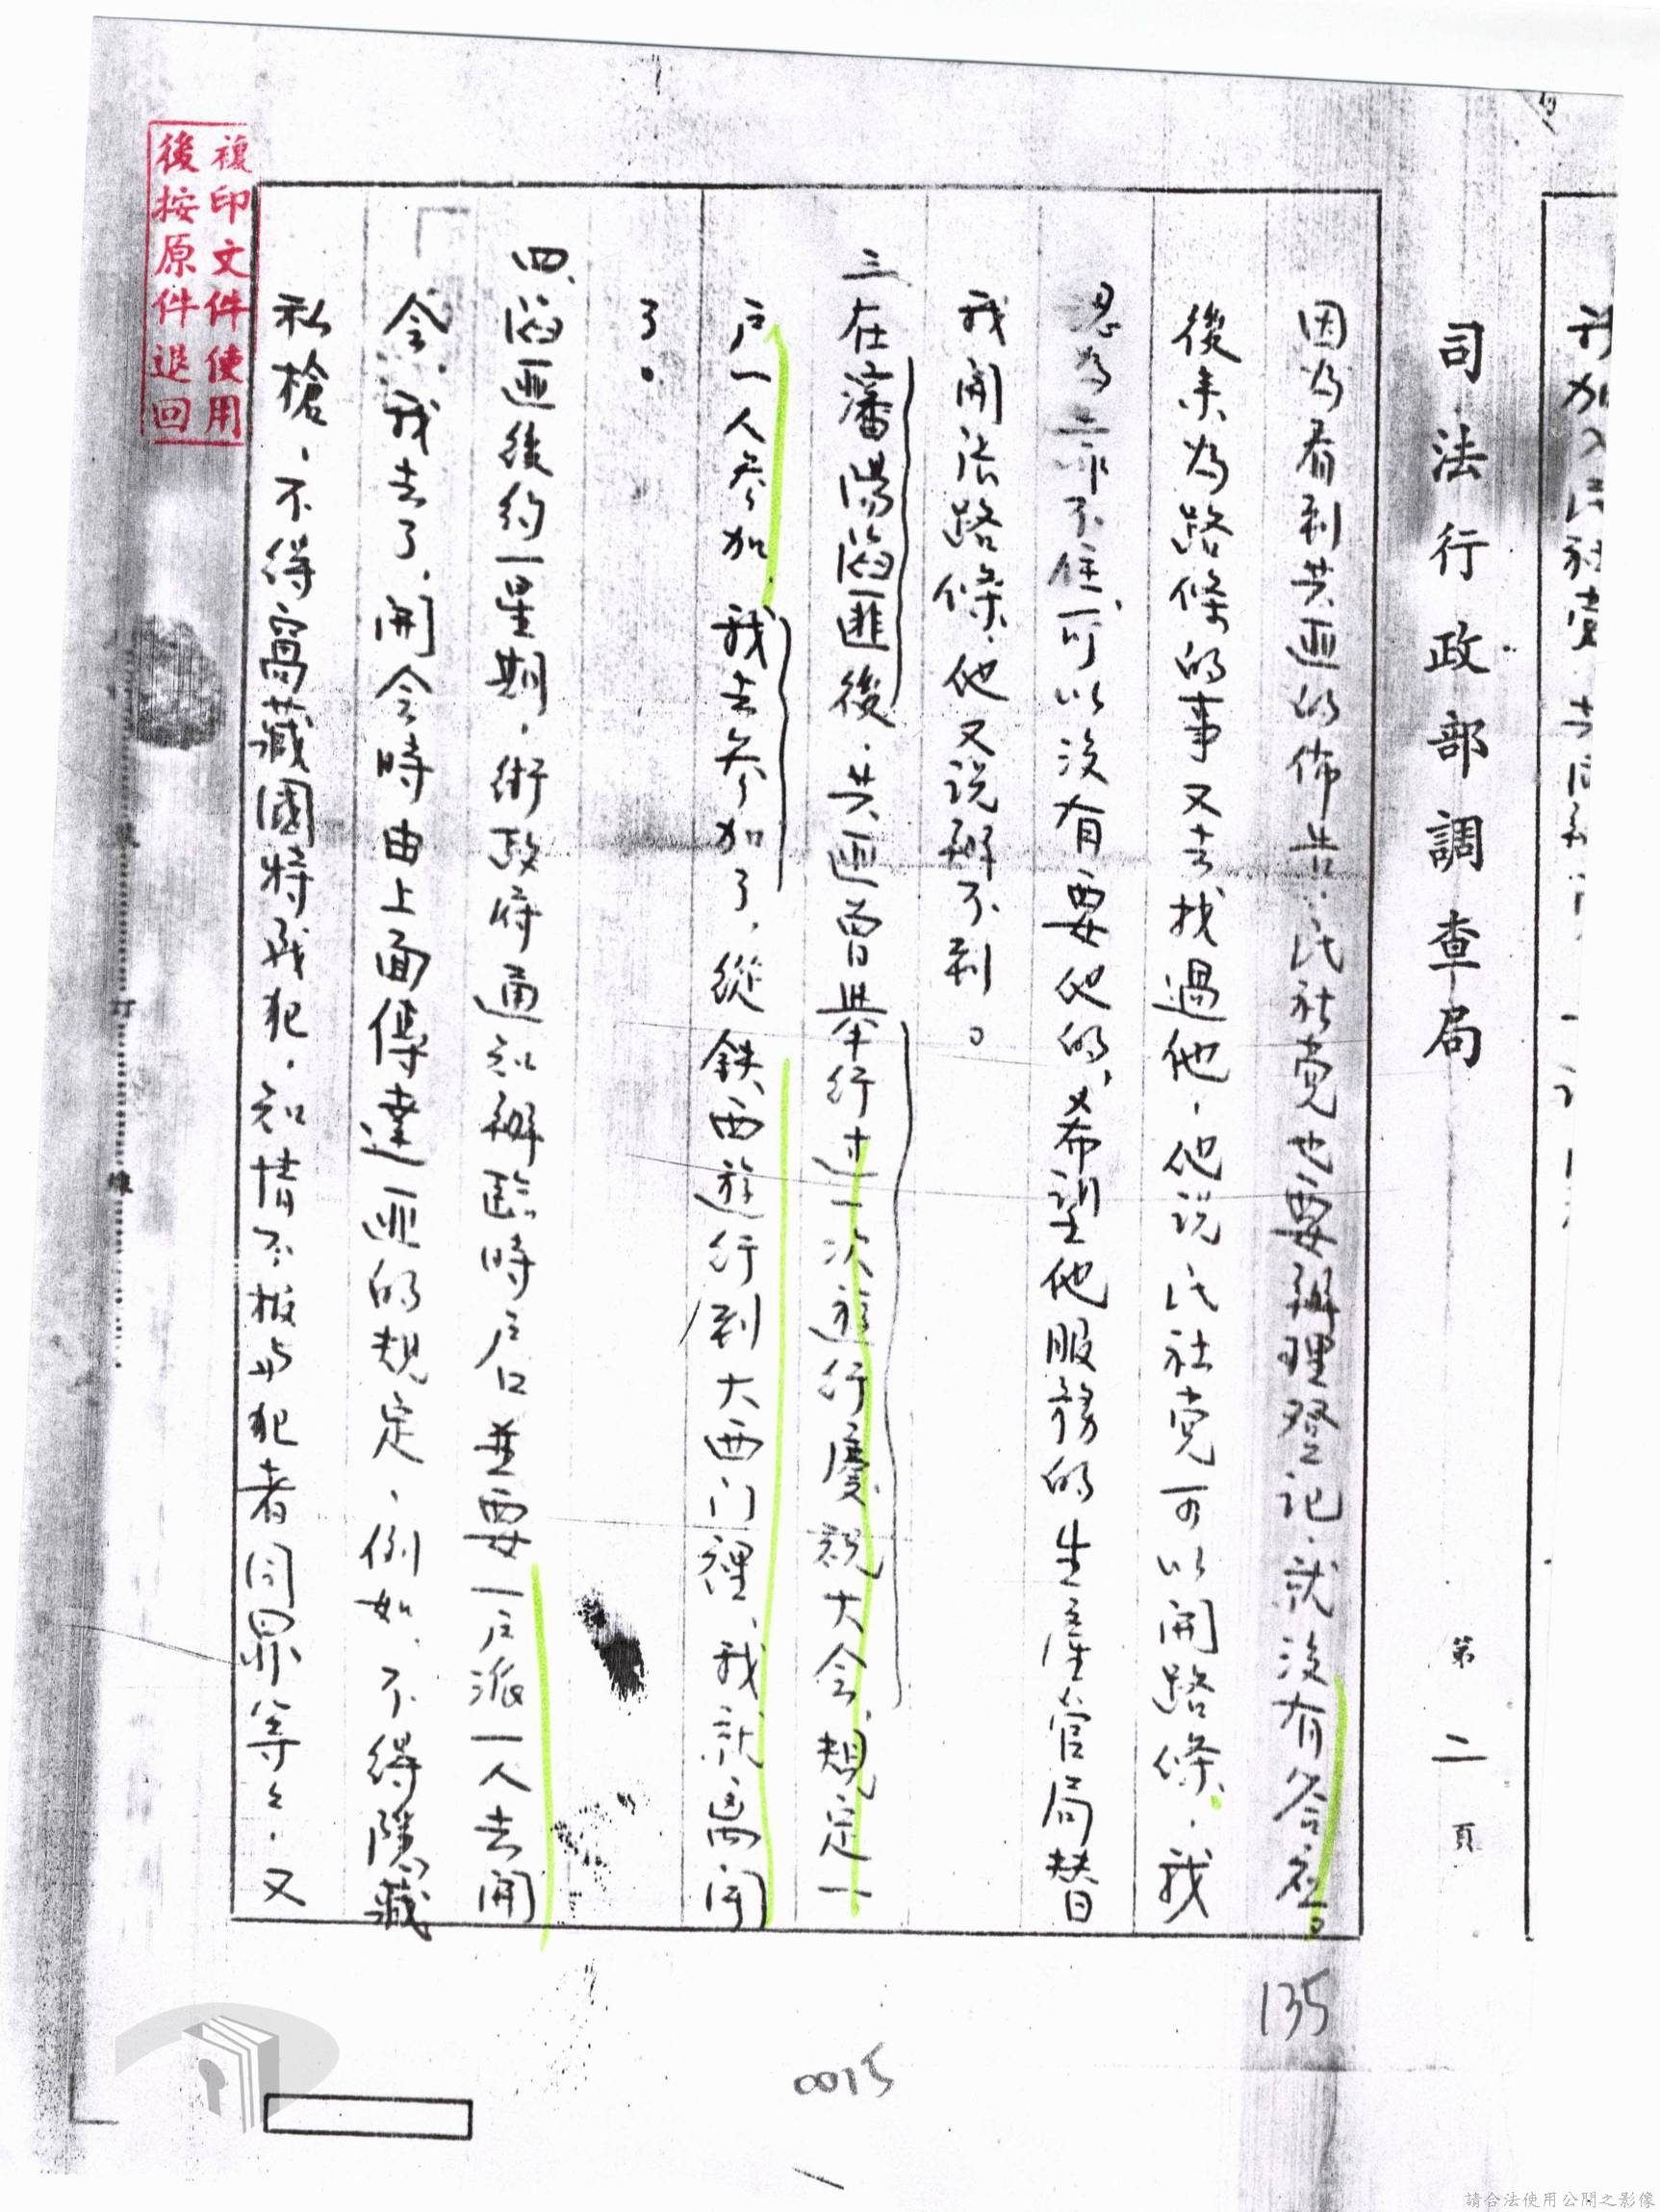 司法行政部調查局
第二頁
因為看到共匪的佈告民社党也要辦理登記.就沒有答应
後來为路條的事又去找過他.他说民社党可以開路條.我
認為靠不住,可以沒有要他的,希望他服務的生產官局替
我開張路條.他又说辦不到。
三在瀋陽陷匪後.共匪曾举行过一次遊行慶祝大会,規定一
户一人参加.我去参加了,從鉄西遊行到大西门裡,我就離開
了。
四、陷匪後約一星期.街政府通知辦臨時户口並要一户派一人去開
会.我去了,開会時由上面傳達匪的規定,例如.不得隱藏
私槍.不得窩藏國特戰犯.知情不報与犯者同罪等々.又
複印文件使用
後按原件退回
135
0015
請合法使用公開之影像